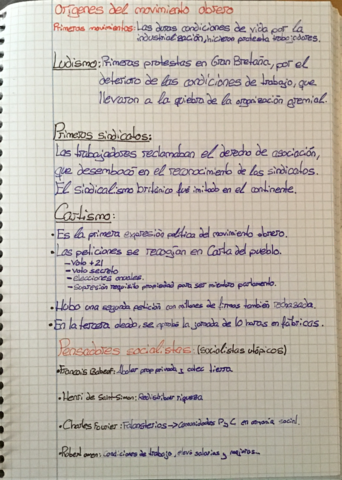 Orígenes del movimiento obrero
Primeros movimientos: Las duras condiciones de vida por la
industrialización, hicieron protestar trabajadores.
Ludismo: Primeras protestas en Gran Bretaña, por el
deterioro de las condiciones de trabajo, que
llevaron a la quiebra de la organización gremial.
Primeros sindicatos:
Los trabajadores reclamaban el derecho de asociación,
que desembocó en el reconocimiento de los sindicatos.
El sindicalismo británico fue imitado en el continente.
Cartismo:
• Es la primera expresión política del movimiento obrero.
• Las peticiones se recogían en Carta del pueblo.
- Voto +21
- Voto secreto
- Elecciones anuales.
- Supresión requisito propiedad para ser miembro parlamento.
• Hubo una segunda petición con millones de firmas también rechazada.
• En la tercera década, se aprobó la jornada de 10 horas en fábricas.
Pensadores socialistas: (socialistas utópicos)
• François Babeuf: Abolir prop privada y colec tierra
• Henri de Saint-Simon: Redistribuir riqueza
• Charles Fourier: Falansterios → comunidades P y C en armonía social.
• Robert Owen: condiciones de trabajo, elevó salarios y mejoras